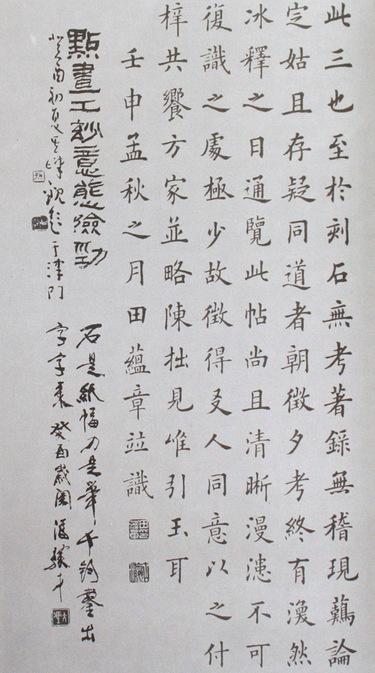 此三也至於刻石無考著錄無稽現蓺論
定姑且存疑同道者朝徵夕考終有渙然
冰釋之日通覽此帖尚且清晰漫漶不可
復識之處極少故徵得友人同意以之付
梓共饗方家並略陳拙見唯引玉耳
壬申孟秋之月田蘊章竝識
點畫工妙意態險勁
癸酉初夏
於津門
石是紙幅刀是筆千鈞鑿出
字字來癸酉歲